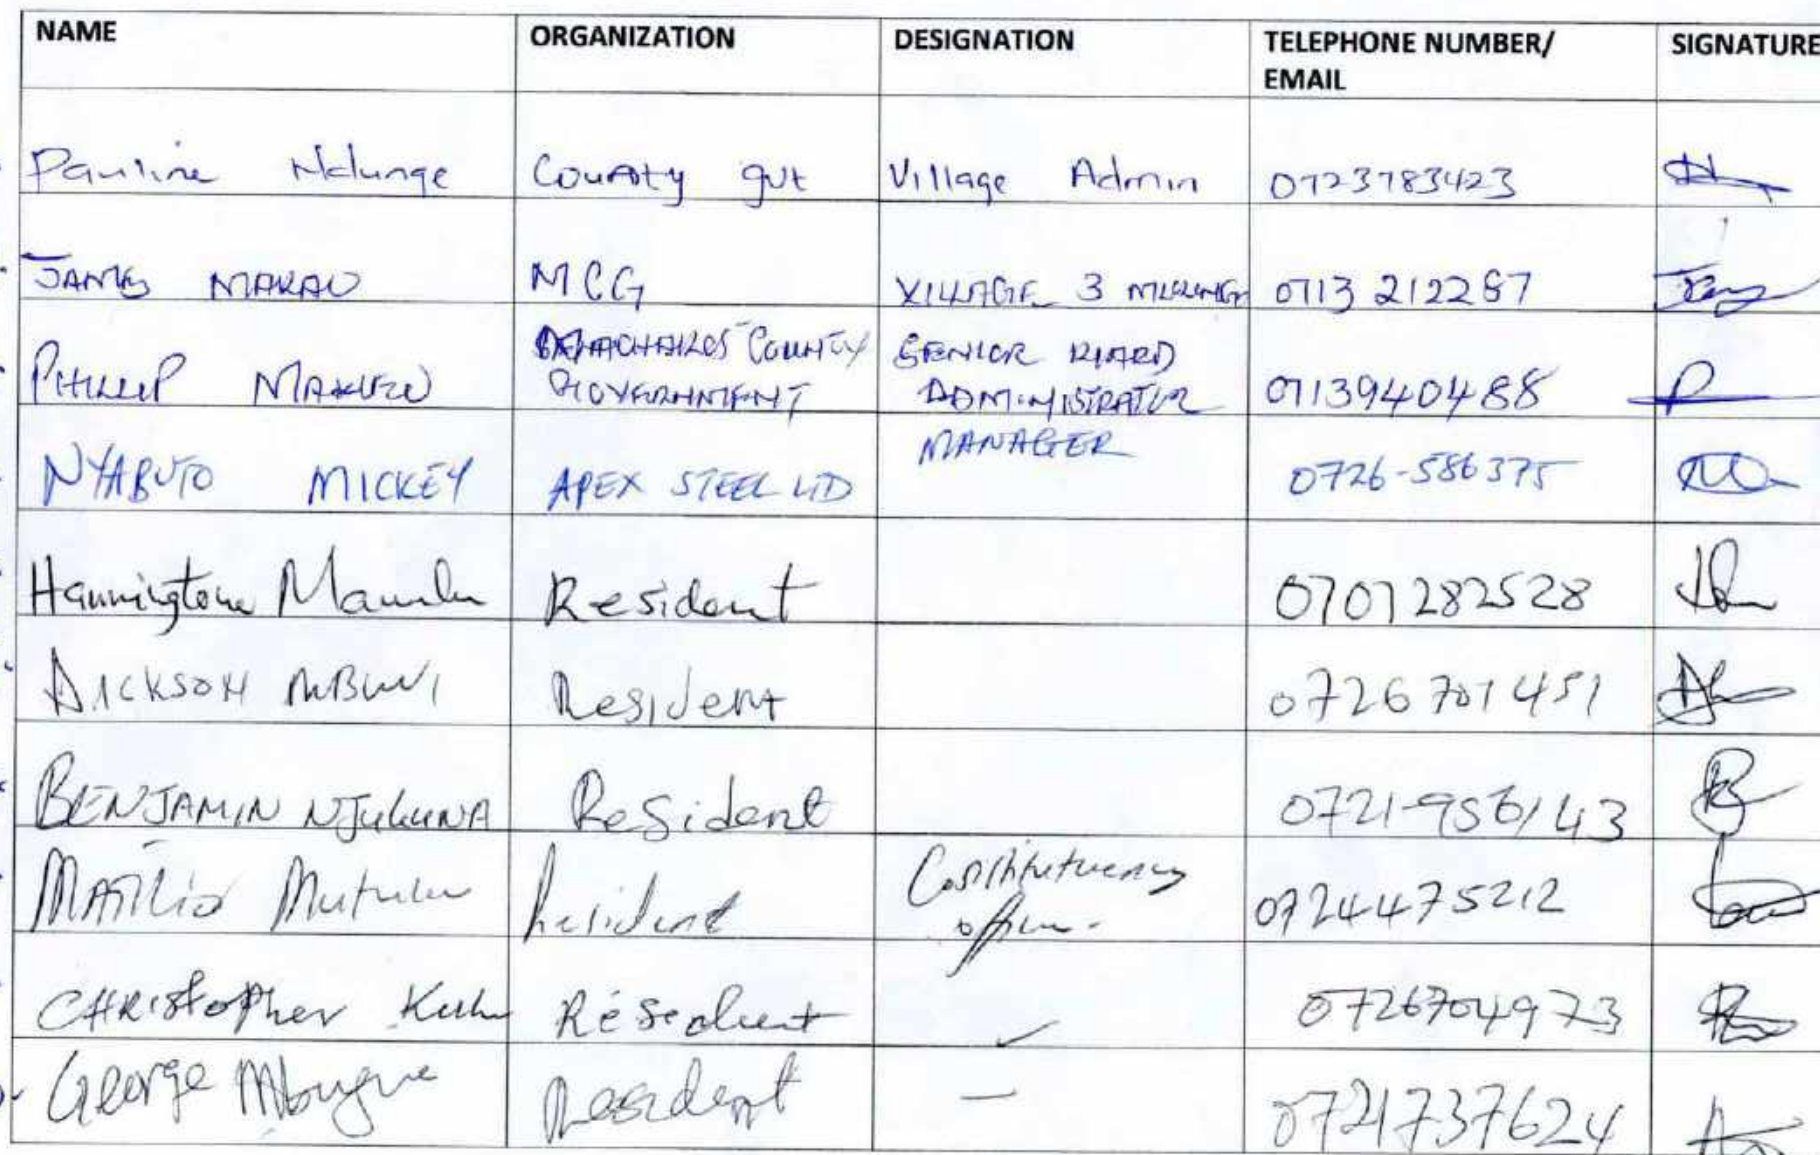 NAME ORGANIZATION DESIGNATION TELEPHONE NUMBER/ EMAIL SIGNATURE
Pauline Ndunge County gvt Village Admin 0723783423
JAMES MAKAU MCG VILLAGE 3 0713 212287
PHILLIP MACHAKOS COUNTY GOVERNMENT SENIOR WARD ADMINISTRATOR 0713940488
NYABUTO MICKEY APEX STEEL LTD MANAGER 0726-586375
Hannington Resident 0707282528
DICKSON MBUVI Resident 0726701451
BENJAMIN NJUGUNA Resident 0721-956143
Mutuku Resident Constituency 0724475212
CHRIStopher Resident 0726704973
George Mbugua Resident - 0721737624